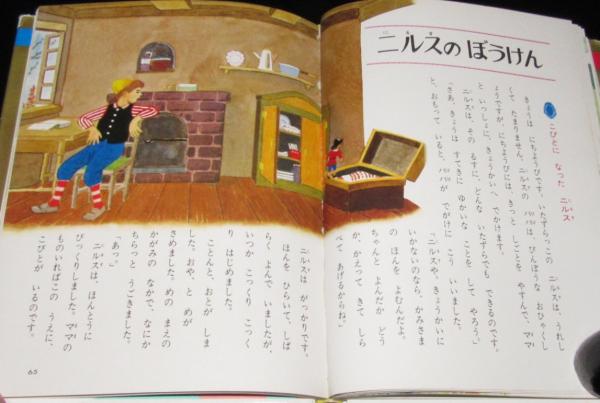 ニルスの ぼうけん
こびとに なった ニルス
きょうは にちようびです。いたずらっこの ニルスは、うれし
くて たまりません。ニルスの パパは びんぼうな おひゃくし
ょうですが、にちようびには、きっと しごとを やすんで、ママ
と いっしょに、きょうかいへ でかけます。
ニルスは、その るすに、どんな いたずらでも できるのです。
「さあ、きょうは すてきに ゆかいな ことを して やろう。」
と、おもって いると、パパが でがけに こう いいました。
「ニルスや、きょうかいに
いかないのなら、かみさま
の ほんを よむんだよ。
ちゃんと よんだか どう
か、かえって きて しら
べて あげるからね。」
ニルスは がっかりです。
ほんを ひらいて、しば
らく よんで いましたが、
いつか こっくり こっく
り はじめました。
ことんと、おとが しま
した。おや、と めが
さめました。めの まえの
かがみの なかで、なにか
ちらっと うごきました。
「あっ。」
ニルスは、ほんとうに
びっくりしました。ママの
ものいればこの うえに、
こびとが いるのです。
65